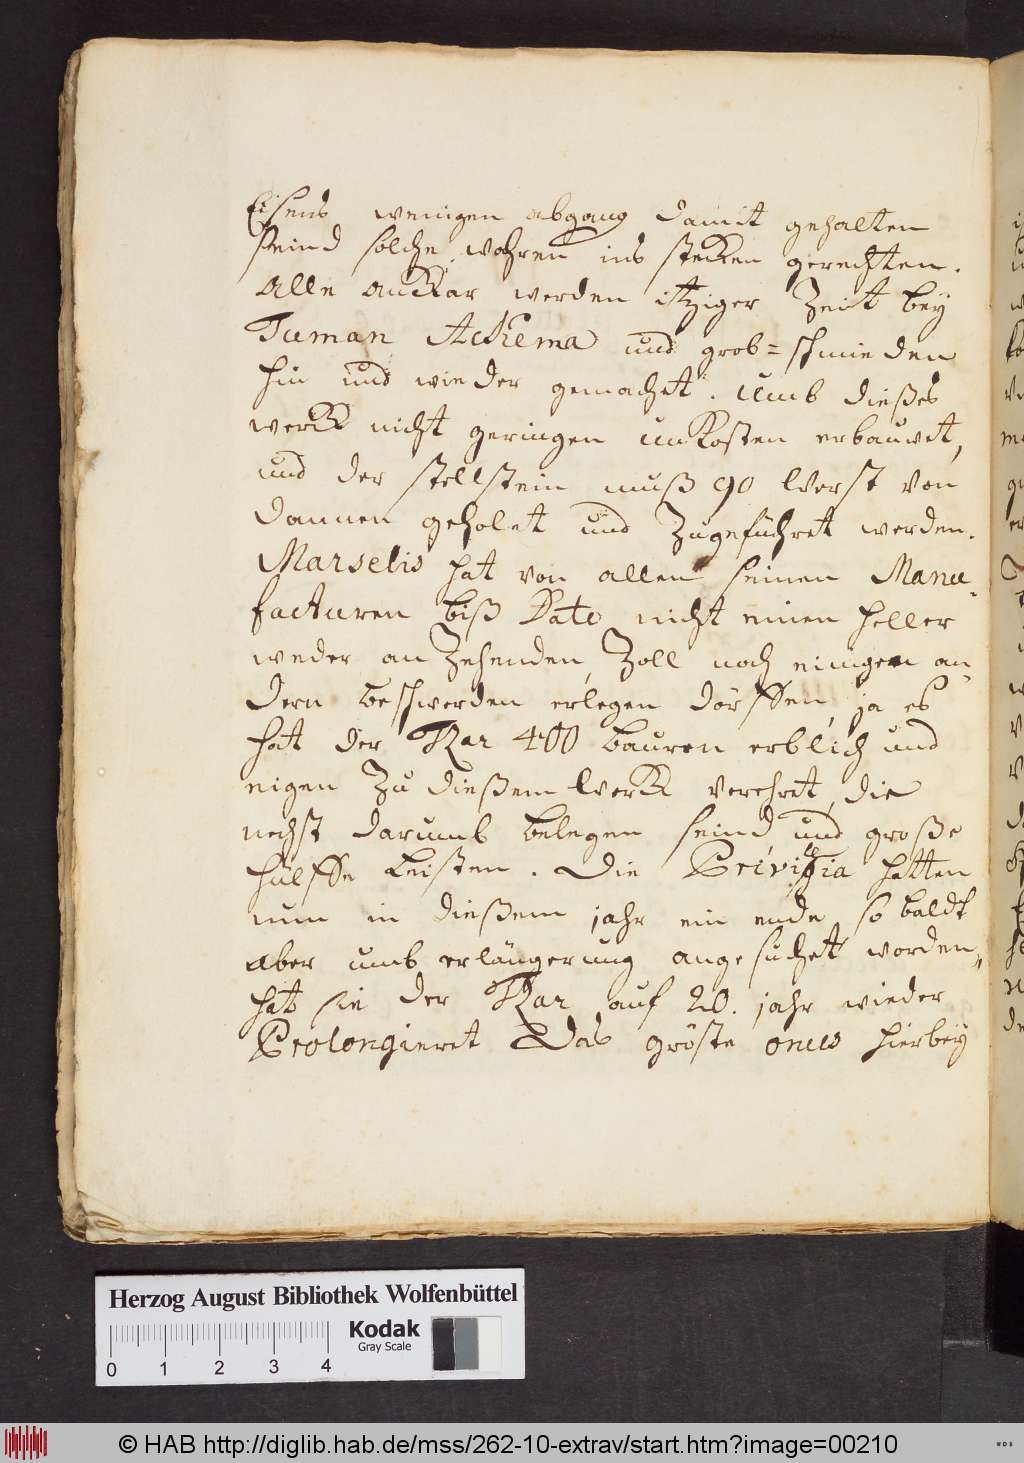 Eisens wenigen abgang damit gehalten
seind solche wahren ins stecken gerahten.
Alle anckar werden itziger Zeit bey
Tieman Ackema und grob=schmieden
hin und wieder gemachet. Umb dießes
werck nicht geringen unkosten erbauwet,
und der stellstein muß 90 Werst von
dannen geholet und Zugeführet werden.
Marselis hat von allen seinen Manu-
facturen biß Dato nicht einen heller
weder an Zehenden, Zoll noch einigen an-
dern beschwerden erlegen dörffen, ja es
hat der Zar 400 bauren erblich und
eigen Zu dießem Werck verehret, die
nechst darumb belegen seind und große
hülffe leisten. Die Privilegia hatten
nun in dießem jahr ein ende, so baldt
aber umb erlängerung angesuchet worden,
hat sie der Zar auf 20. jahr wieder
Prolongieret Das gröste onus hierbey
Herzog August Bibliothek Wolfenbüttel
Kodak
Gray Scale
0 1 2 3 4
© HAB http://diglib.hab.de/mss/262-10-extrav/start.htm?image=00210